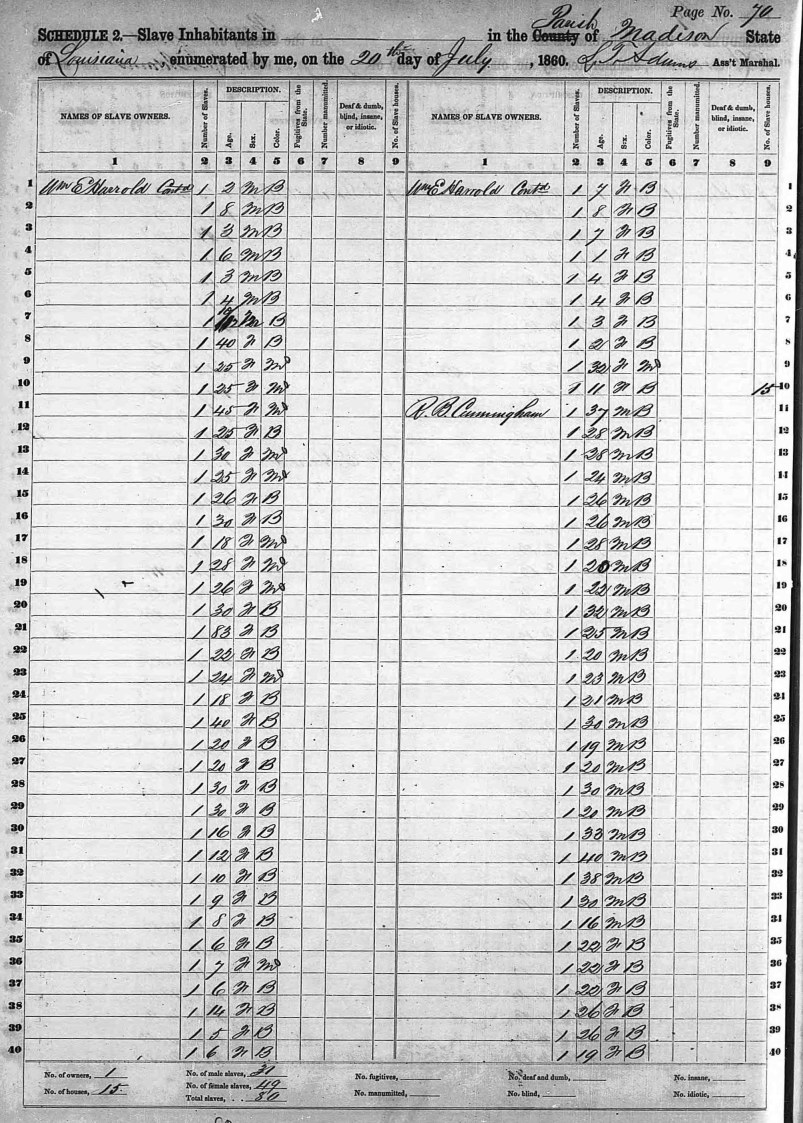 Page No. 70
SCHEDULE 2.—Slave Inhabitants in in the County Parish of Madison State
of Louisiana, enumerated by me, on the 20th day of July, 1860. L. T. Adams Ass't Marshal.
NAMES OF SLAVE OWNERS. Number of Slaves. DESCRIPTION. Age. Sex. Color. Fugitives from the State. Number manumitted. Deaf & dumb, blind, insane, or idiotic. No. of Slave houses. NAMES OF SLAVE OWNERS. Number of Slaves. DESCRIPTION. Age. Sex. Color. Fugitives from the State. Number manumitted. Deaf & dumb, blind, insane, or idiotic. No. of Slave houses.
1 2 3 4 5 6 7 8 9 1 2 3 4 5 6 7 8 9
1 Wm E Harrold Contd 1 2 M B Wm E Harrold Contd 1 7 F B 1
2 1 8 M B 1 8 F B 2
3 1 3 M B 1 7 F B 3
4 1 6 M B 1 1 F B 4
5 1 3 M B 1 4 F B 5
6 1 4 M B 1 4 F B 6
7 1 M B 1 3 F B 7
8 1 40 F B 1 2 F B 8
9 1 25 F M 1 32 F M 9
10 1 25 F M 1 11 F B 15 10
11 1 45 F M R. B. Cunningham 1 37 M B 11
12 1 25 F B 1 28 M B 12
13 1 30 F M 1 28 M B 13
14 1 25 F M 1 24 M B 14
15 1 26 F B 1 26 M B 15
16 1 30 F B 1 26 M B 16
17 1 18 F M 1 28 M B 17
18 1 28 F M 1 20 M B 18
19 1 26 F M 1 22 M B 19
20 1 30 F B 1 32 M B 20
21 1 83 F B 1 25 M B 21
22 1 22 F B 1 20 M B 22
23 1 24 F M 1 23 M B 23
24 1 18 F B 1 21 M B 24
25 1 40 F B 1 30 M B 25
26 1 20 F B 1 19 M B 26
27 1 20 F B 1 20 M B 27
28 1 30 F B 1 30 M B 28
29 1 30 F B 1 20 M B 29
30 1 16 F B 1 33 M B 30
31 1 12 F B 1 40 M B 31
32 1 10 F B 1 38 M B 32
33 1 9 F B 1 30 M B 33
34 1 8 F B 1 16 M B 34
35 1 6 F B 1 22 F B 35
36 1 7 F M 1 22 F B 36
37 1 6 F B 1 22 F B 37
38 1 14 F B 1 26 F B 38
39 1 5 F B 1 26 F B 39
40 1 6 F B 1 19 F B 40
No. of owners, 1 No. of male slaves, 31 No. fugitives, No. deaf and dumb, No. insane,
No. of houses, 15 No. of female slaves, 49 No. manumitted, No. blind, No. idiotic,
Total slaves, 80